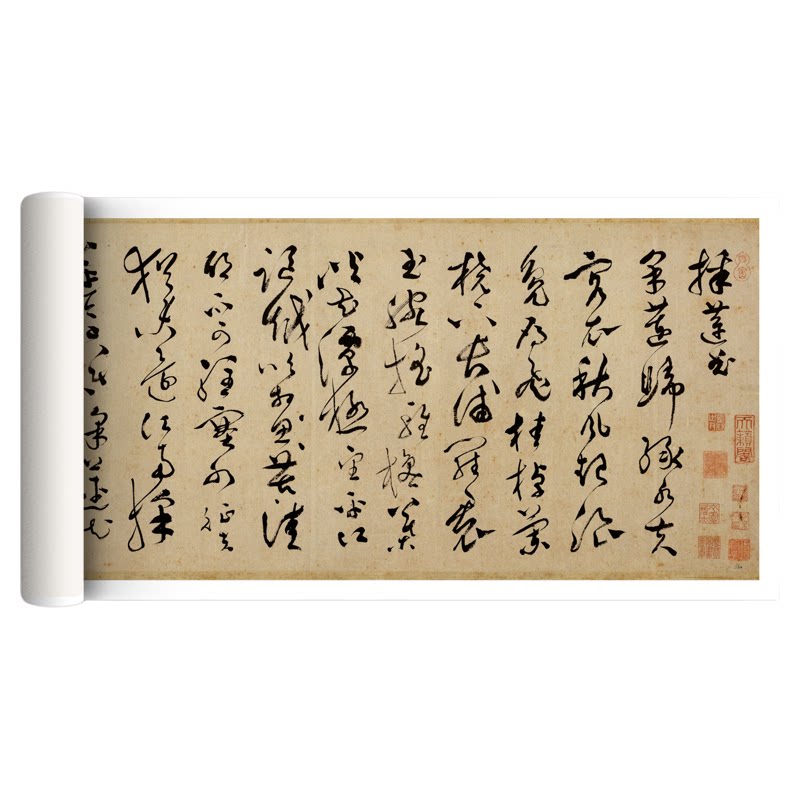 採蓮曲
采蓮歸綠水芙
蓉衣秋風起浪
鳧雁飛桂棹蘭
橈下長浦羅裙
玉腕搖輕櫓葉
嶼花潭極望平江
謳越吹相思苦佳
期不可駐塞外征夫
猶未還江南採
蓮今已暮采蓮花